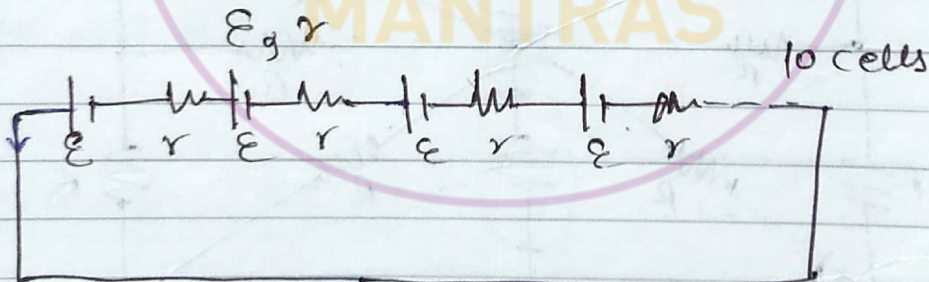 MANTRAS
ε, r
10 cells
ε r ε r ε r ε r